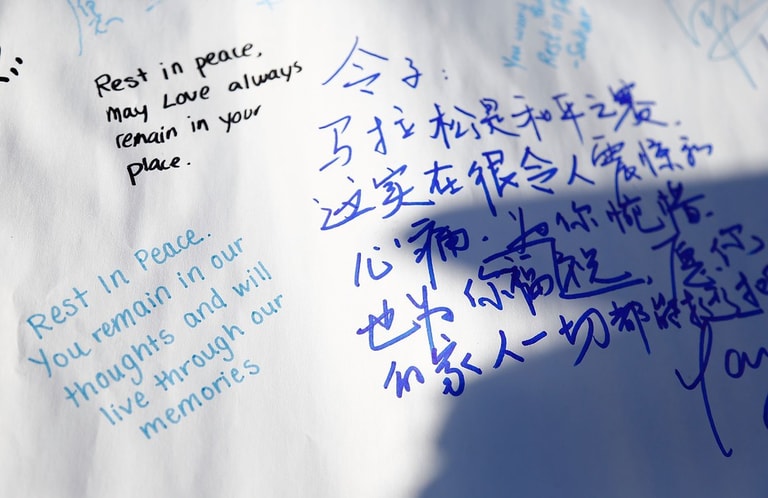 Rest in peace,
may Love always
remain in your
place.
Rest In Peace.
You remain in our
thoughts and will
live through our
memories
令子:
马拉松是和平之赛
这实在很令人震惊和
心痛. 为你惋惜.
也为你福祝, 愿你
的家人一切都能
You
Rest in